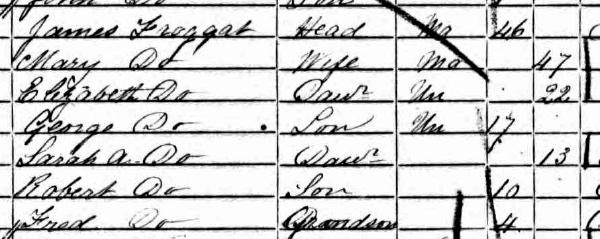 John Do Son
James Froggat Head Ma 46
Mary Do Wife Ma 47
Elizabeth Do Dawr Un 22
George Do Son Un 17
Sarah A. Do Dawr 13
Robert Do Son 10
Fred Do Grandson 4